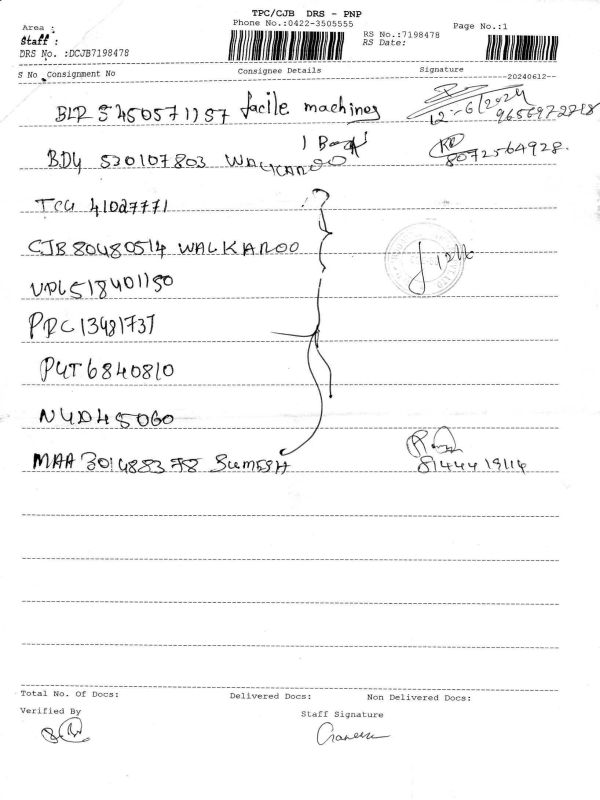 TPC/CJB DRS - PNP
Area :
Phone No.:0422-3505555
Page No.:1
Staff :
RS No.:7198478
DRS No. :DCJB7198478
RS Date:
S No Consignment No Consignee Details Signature
--20240612--
BLR 5450571157 facile machines
12-6/2024
9656972218
1 Book
BDY 530107803 WALKAROO
8072564928.
TCU 41027771
CJB 80480514 WALKAROO
12/6
VPL 518401150
PRC 13481737
PUT 6840810
NUD 45060
MAA 301488378 Sumesh
8144419114
Total No. Of Docs: Delivered Docs: Non Delivered Docs:
Verified By
Staff Signature
Ganesh